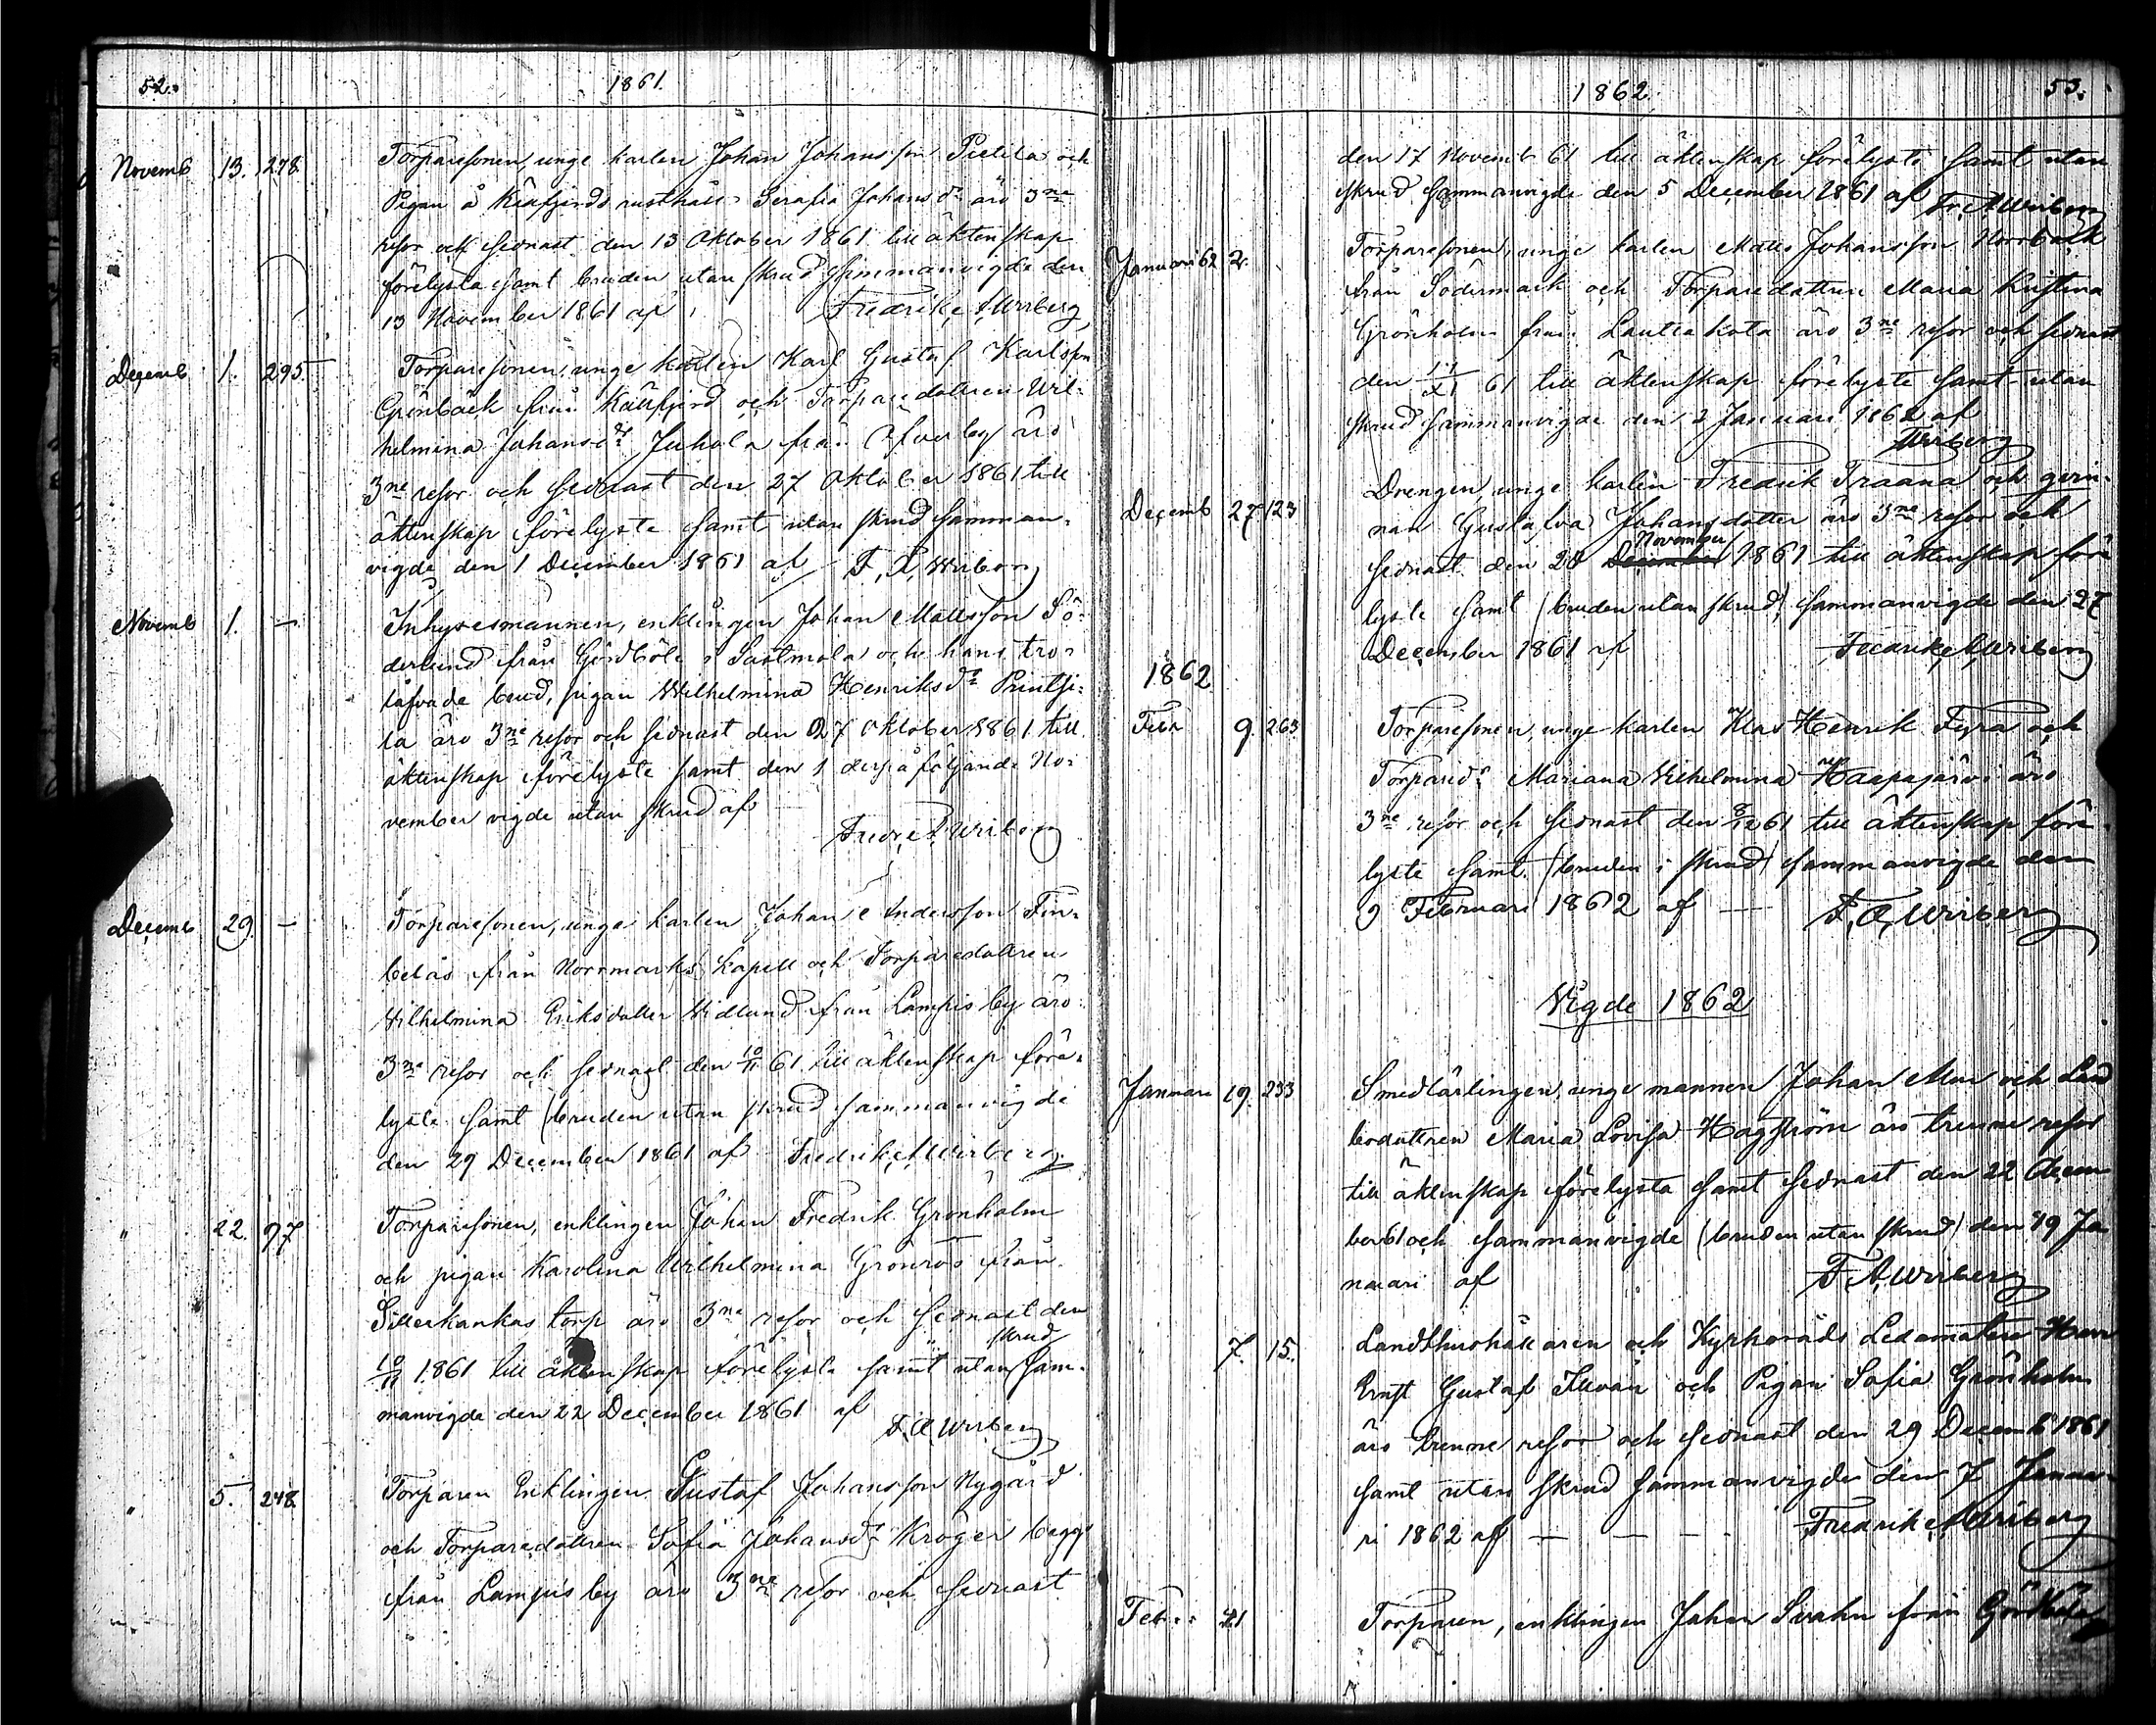 52. 1861.
Novemb 13. 278. Torparesonen, unge karlen Johan Johansson Pietila och
Pigan å Kråfjerds rusthåll Serafia Johansdr äro 3ne
resor och sednast den 13 Oktober 1861 till äktenskap
förelysta samt bruden utan skrud sammanvigde den
13 November 1861 af Fredrik A Wriberg
Decemb 1. 295 Torparesonen, unge karlen Karl Gustaf Karlsson
Grönback från Kåfjerd och Torparedottren Wil-
helmina Johansdr Juhola från Öfverby äro
3ne resor och sednast den 27 Oktober 1861 till
äktenskap förelyste samt utan skrud samman-
vigde den 1 December 1861 af F. A. Wriberg
Novemb 1. — Inhysesmannen, enklingen Johan Mattsson Sö-
derlund från Gördböle i Sastmola och hans tro-
låfvade brud, pigan Wilhelmina Henriksdr Prinsi-
la äro 3ne resor och sednast den 27 Oktober 1861 till
äktenskap förelyste samt den 1 derpåföljande No-
vember vigde utan skrud af
Fredr A Wriberg
Decemb 29. — Torparesonen, unge karlen Johan Andersson Fin-
belås från Norrmarks kapell och Torparedottren
Vilhelmina Eriksdotter Widlund från Lampis by äro
3ne resor och sednast den 10/11 61 till äktenskap före-
lyste samt (bruden utan skrud sammanvigde
den 29 December 1861 af Fredrik A Wriberg
" 22. 97 Torparesonen, enklingen Johan Fredrik Grönholm
och pigan Karolina Wilhelmina Grönroos från
Sillerkankas torp äro 3ne resor och sednast den
10/11 1861 till äktenskap förelysta samt utan skrud sam-
manvigde den 22 December 1861 af F. A Wriberg
" 5. 248. Torparen Enklingen Gustaf Johansson Nygård
och Torparedottren Sofia Johansdr Kröger begge
från Lampis by äro 3ne resor och sednast
1862. 53.
den 17 Novemb 61 till äktenskap förelyste samt utan
skrud sammanvigde den 5 December 1861 af Fr. A Wriberg
Januari 62 2. Torparesonen, unge karlen Matts Johansson Norrback
från Södermark och Torparedottren Maria Kristina
Grönholm från Lautiakota äro 3ne resor och sednast
den 17/XI 61 till äktenskap förelyste samt utan
skrud sammanvigde den 2 Januari 1862 af
Wriberg
Decemb 27 123 Drengen, unge karlen Fredrik Traana och qvin-
nan Gustafva Johansdotter äro 3ne resor och
sednast den 20 November 1861 till äktenskap före
lyste samt (bruden utan skrud) sammanvigde den 27
December 1861 af Fredrik A Wriberg
1862
Febr 9. 263 Torparesonen, unge karlen Klas Henrik Fyra och
Torparedr Mariana Vilhelmina Haapajärvi äro
3ne resor och sednast den 8/12 61 till äktenskap före
lyste samt (bruden i skrud) sammanvigde den
9 Februari 1862 af — F. A. Wriberg
Vigde 1862
Januari 19. 233 Smedlärlingen, unge mannen Johan Mur och Land
bodottren Maria Lovisa Hagström äro trenne resor
till äktenskap förelysta samt sednast den 22 Decem
ber 61 och sammanvigde (bruden utan skrud) den 19 Ja
nuari af F A Wriberg
7. 15. Landthushållaren och Kyrkoråds Ledamoten Herr
Ernst Gustaf och Pigan Sofia Grönholm
äro trenne resor och sednast den 29 Decemb 1861
samt utan skrud sammanvigde den 7 Janua-
ri 1862 af — — — Fredrik A Wriberg
Febr 21 Torparen, enklingen Johan Svahn från Gördböle